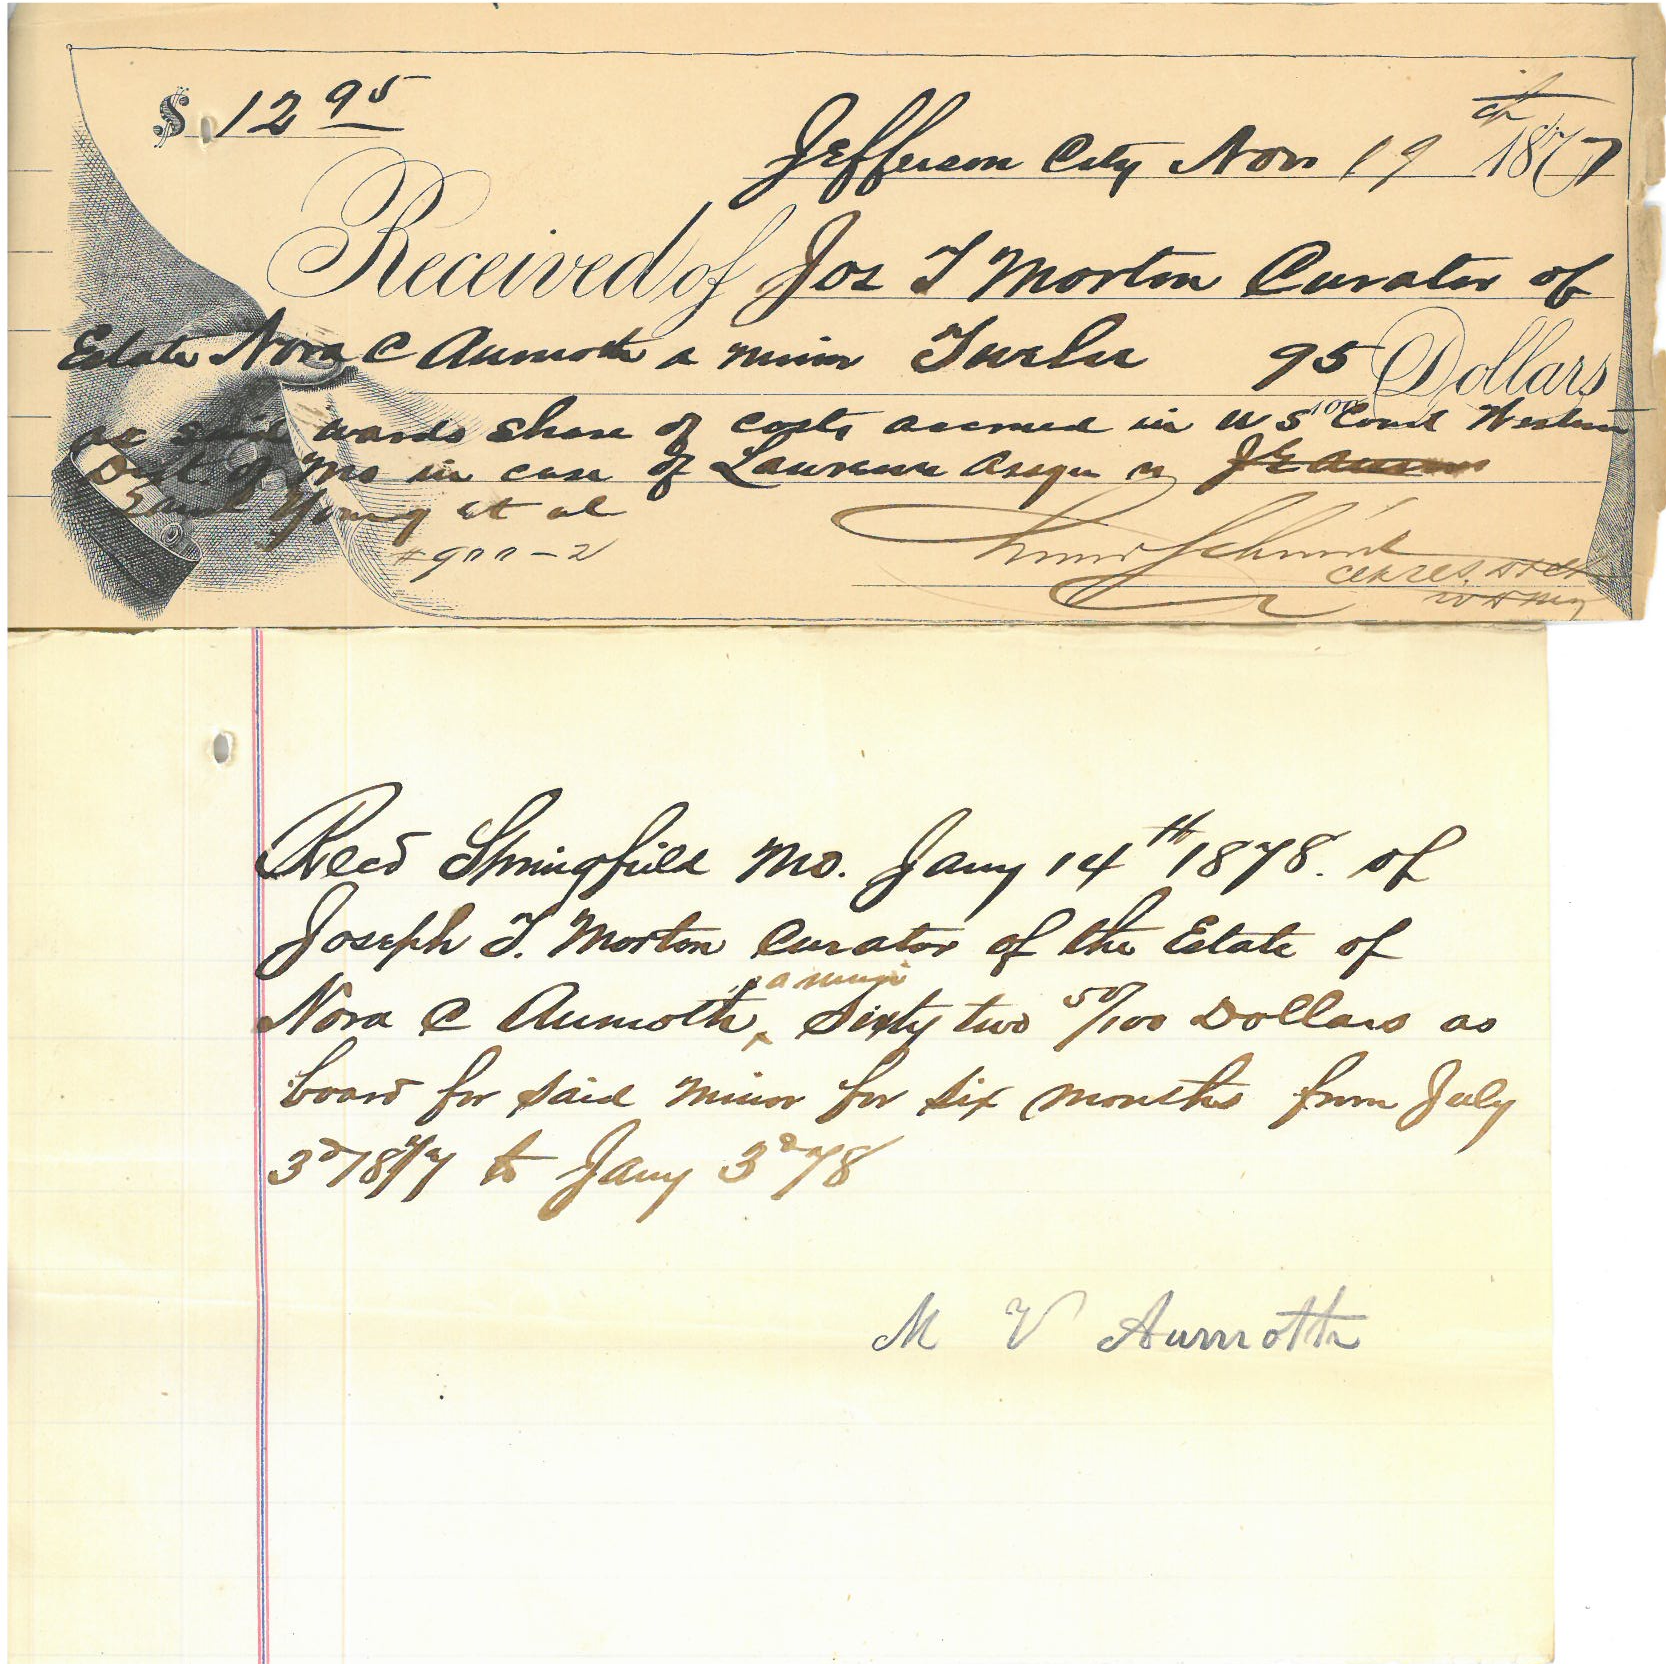 $ 12 95
Jefferson City Nov 19th 1877
Received of Jos T Morton Curator of
Estate Nora C Aumoth a minor Twelve 95/100 Dollars
as said wards share of costs accrued in U S Court Western
Dist. of Mo in case of Lawrence Assgn vs
Saml Young et al
#900-2
Recd Springfield Mo. Jany 14th 1878. of
Joseph T. Morton Curator of the Estate of
a minor
Nora C Aumoth, Sixty two 50/100 Dollars as
board for said minor for six months from July
3d 1877 to Jany 3d 78
M V Aumoth